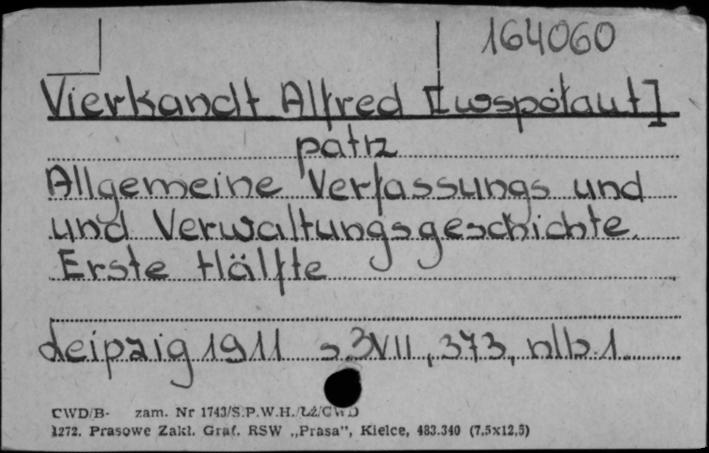 164060
Vierkandt Alfred [współaut]
patrz
Allgemeine Verfassungs und
und Verwaltungsgeschichte.
Erste Hälfte
Leipzig 1911 s VII, 373, nlb. 1.
CWD/B- zam. Nr 1743/S.P.W.H./Łż/CWD
1272. Prasowe Zakł. Graf. RSW „Prasa”, Kielce, 483.340 (7,5x12,5)